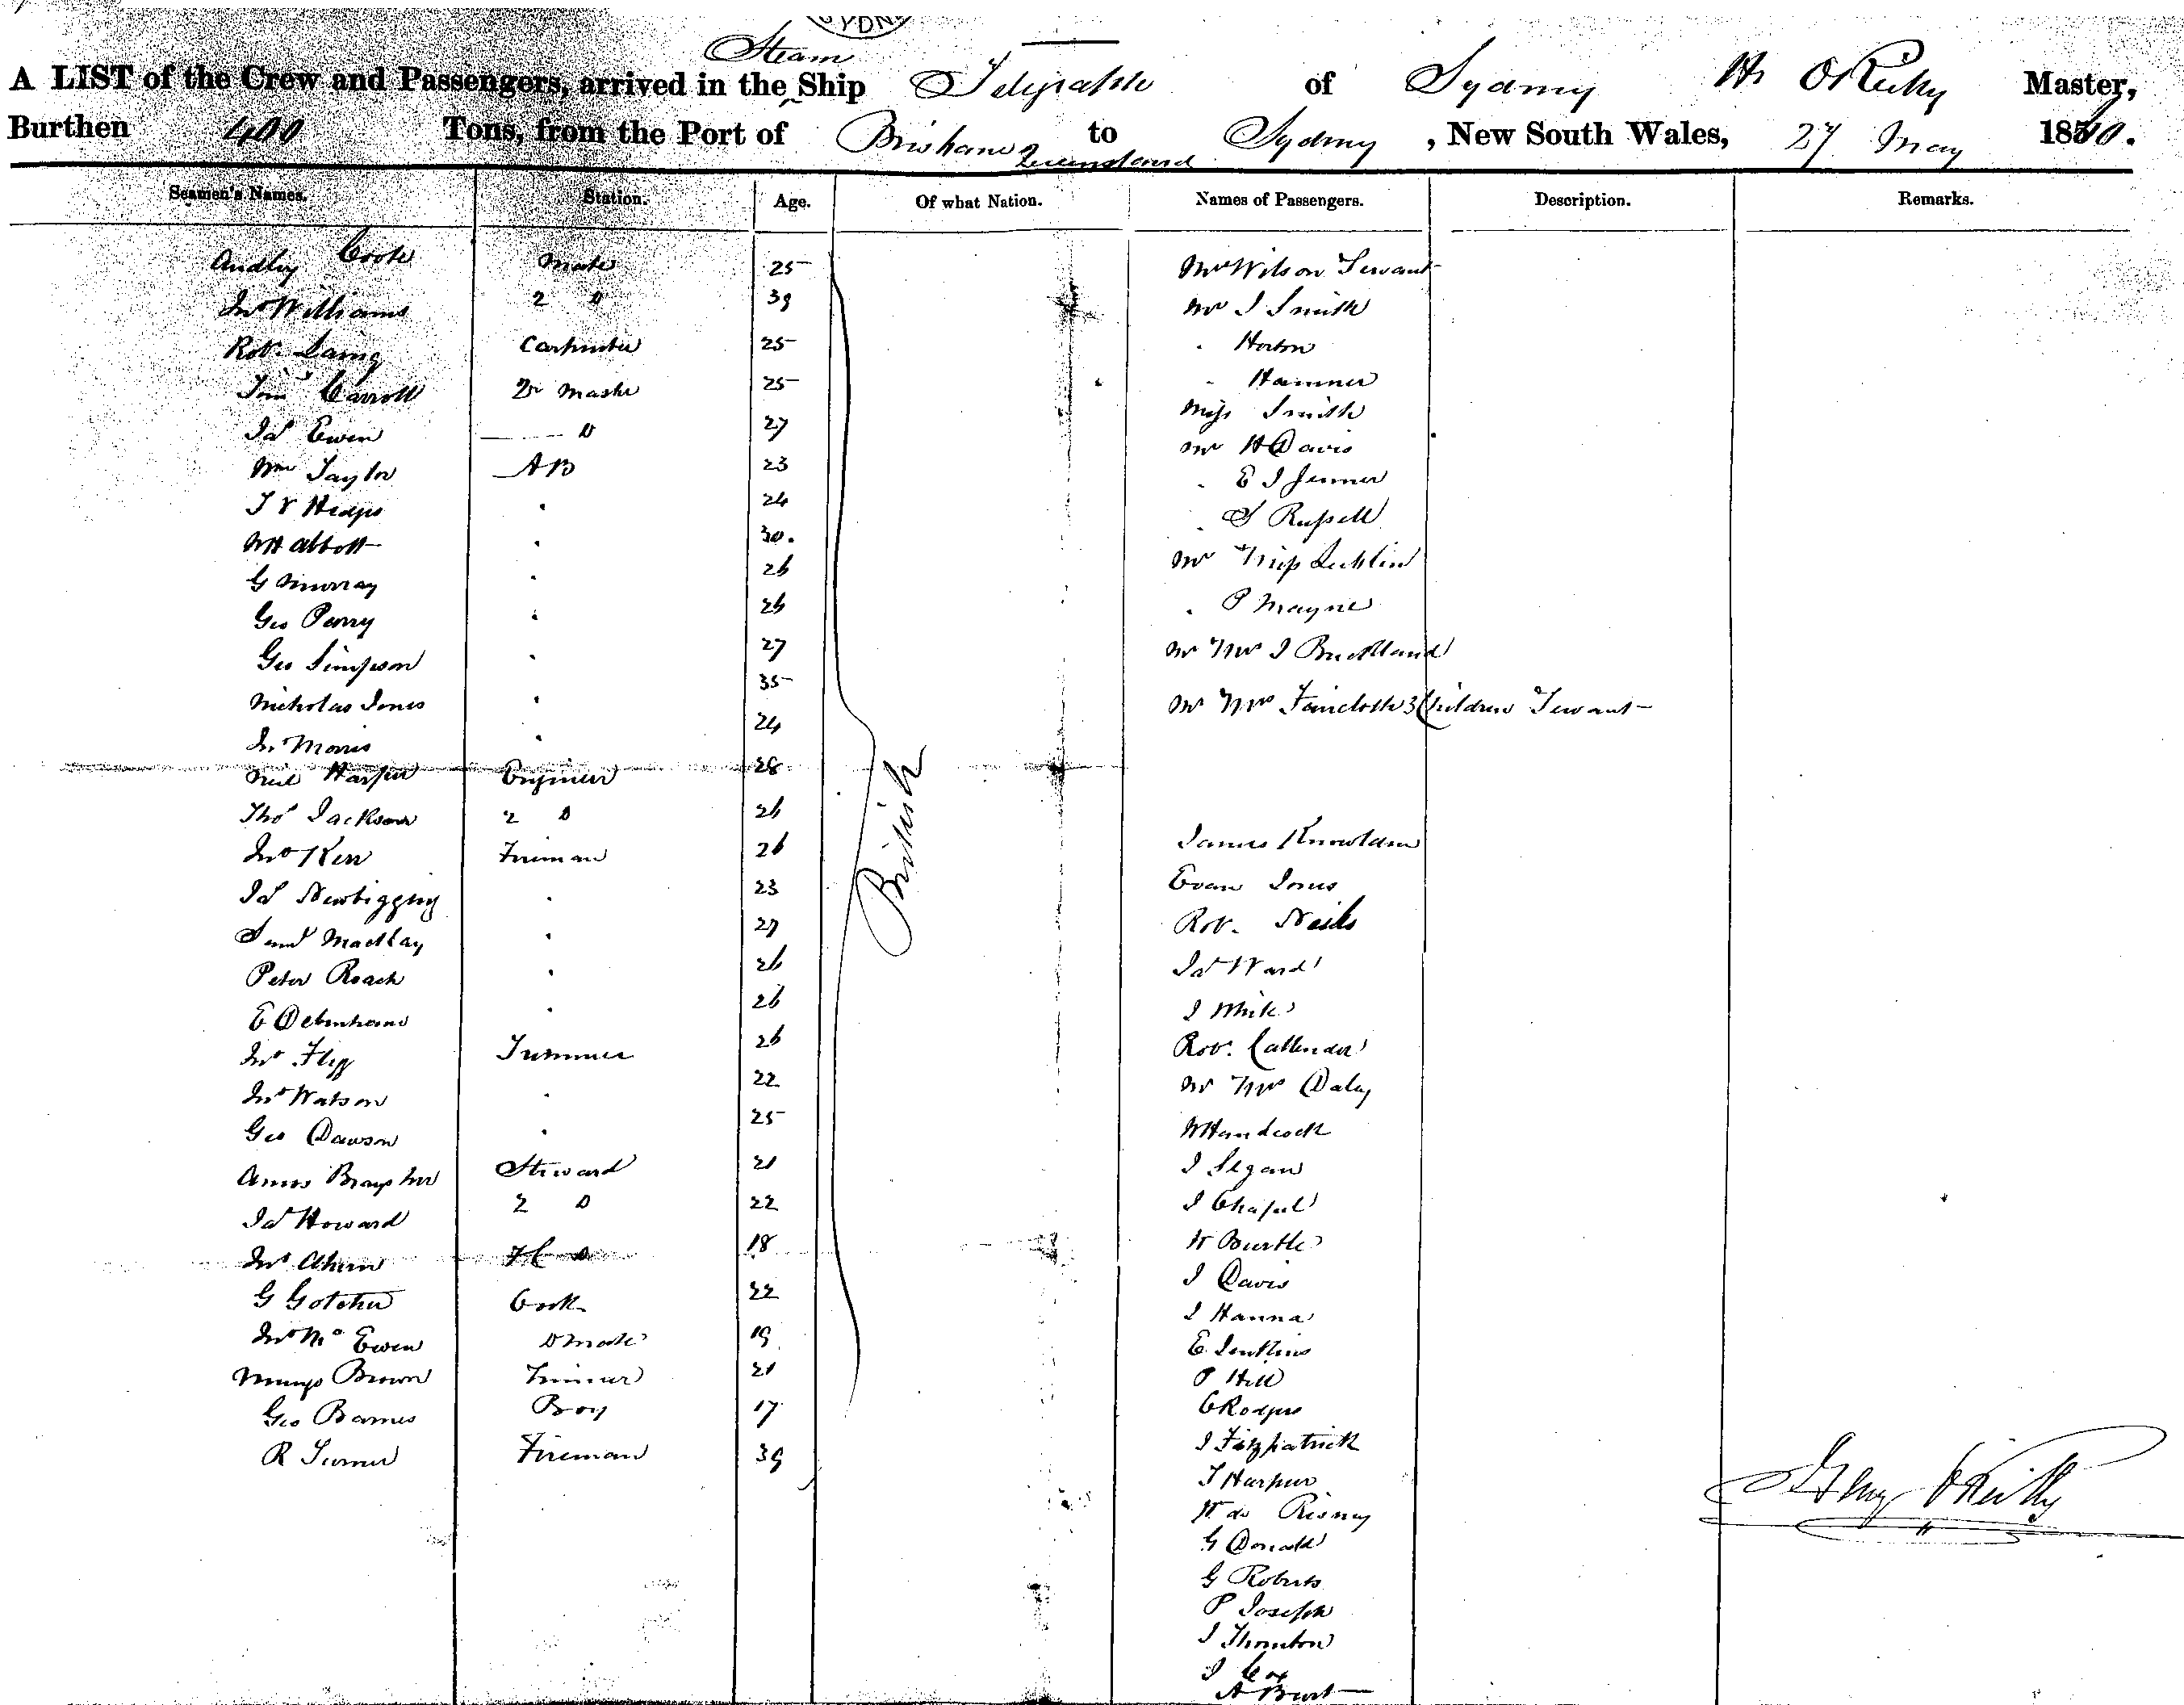 SYDN
Steam
A LIST of the Crew and Passengers, arrived in the Ship Telegraph of Sydney H. O'Reilly Master,
Burthen 400 Tons, from the Port of Brisbane Queensland to Sydney, New South Wales, 27 May 1860.
Seamen's Names. Station. Age. Of what Nation. Names of Passengers. Description. Remarks.
Audley Coote Mate 25 Mrs Wilson Servant
Jno Williams 2 D 39 Mr J Smith
Robt Laing Carpenter 25 " Horton
Tim Carroll Qr Master 25 " Hammer
Jas Ewen D 27 Miss Smith
Wm Taylor AB 23 Mr H Davis
J V Hedges " 24 " E J Jenner
W H Abbott " 30. " S Russell
G Murray " 26 Mr Miss Lechlin
Geo Perry " 26 " P Mayne
Geo Simpson " 27 Mr Mrs J Buckland
Nicholas Jones " 35 Mr Mrs Faircloth 3 Children Servant
Jn Morris " 24
Neil Harper Engineer 28
British
Thos Jackson 2 D 26
Jno Kerr Fireman 26 James Knowlden
Jas Newbigging " 23 Evan Jones
Saml Mackay " 27 Robt Neils
Peter Roach " 26 Jas Ward
E Debenham " 26 J White
Jno Flegg Trimmer 26 Robt Callender
Jno Watson " 22 Mr Mrs Daley
Geo Dawson " 25 W Handcock
Amos Braysher Steward 21 J Segan
Jas Howard 2 D 22 J Chapel
Jno Ahern D 18 W Burtle
G Gotcher Cook 22 J Davis
J Hanna
Jno McEwen D Mate 19 E Jenkins
Mungo Brown Trimmer 21 P Hill
Geo Barnes Boy 17 C Rodgers
R Turner Fireman 39 J Fitzpatrick
T Harpur
W de Risney
Henry O'Reilly
G Donald
G Roberts
P Joseph
J Thornton
J Cox
A Burt